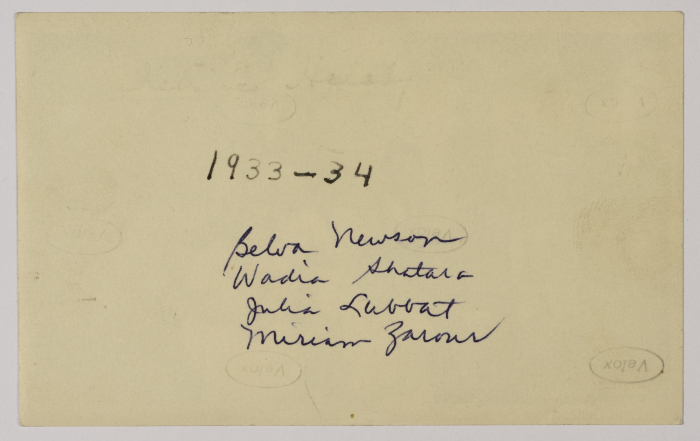 1933-34
Belva Newson
Wadia Shatara
Julia Labbat
Miriam Zarour
Velox
Velox
Velox